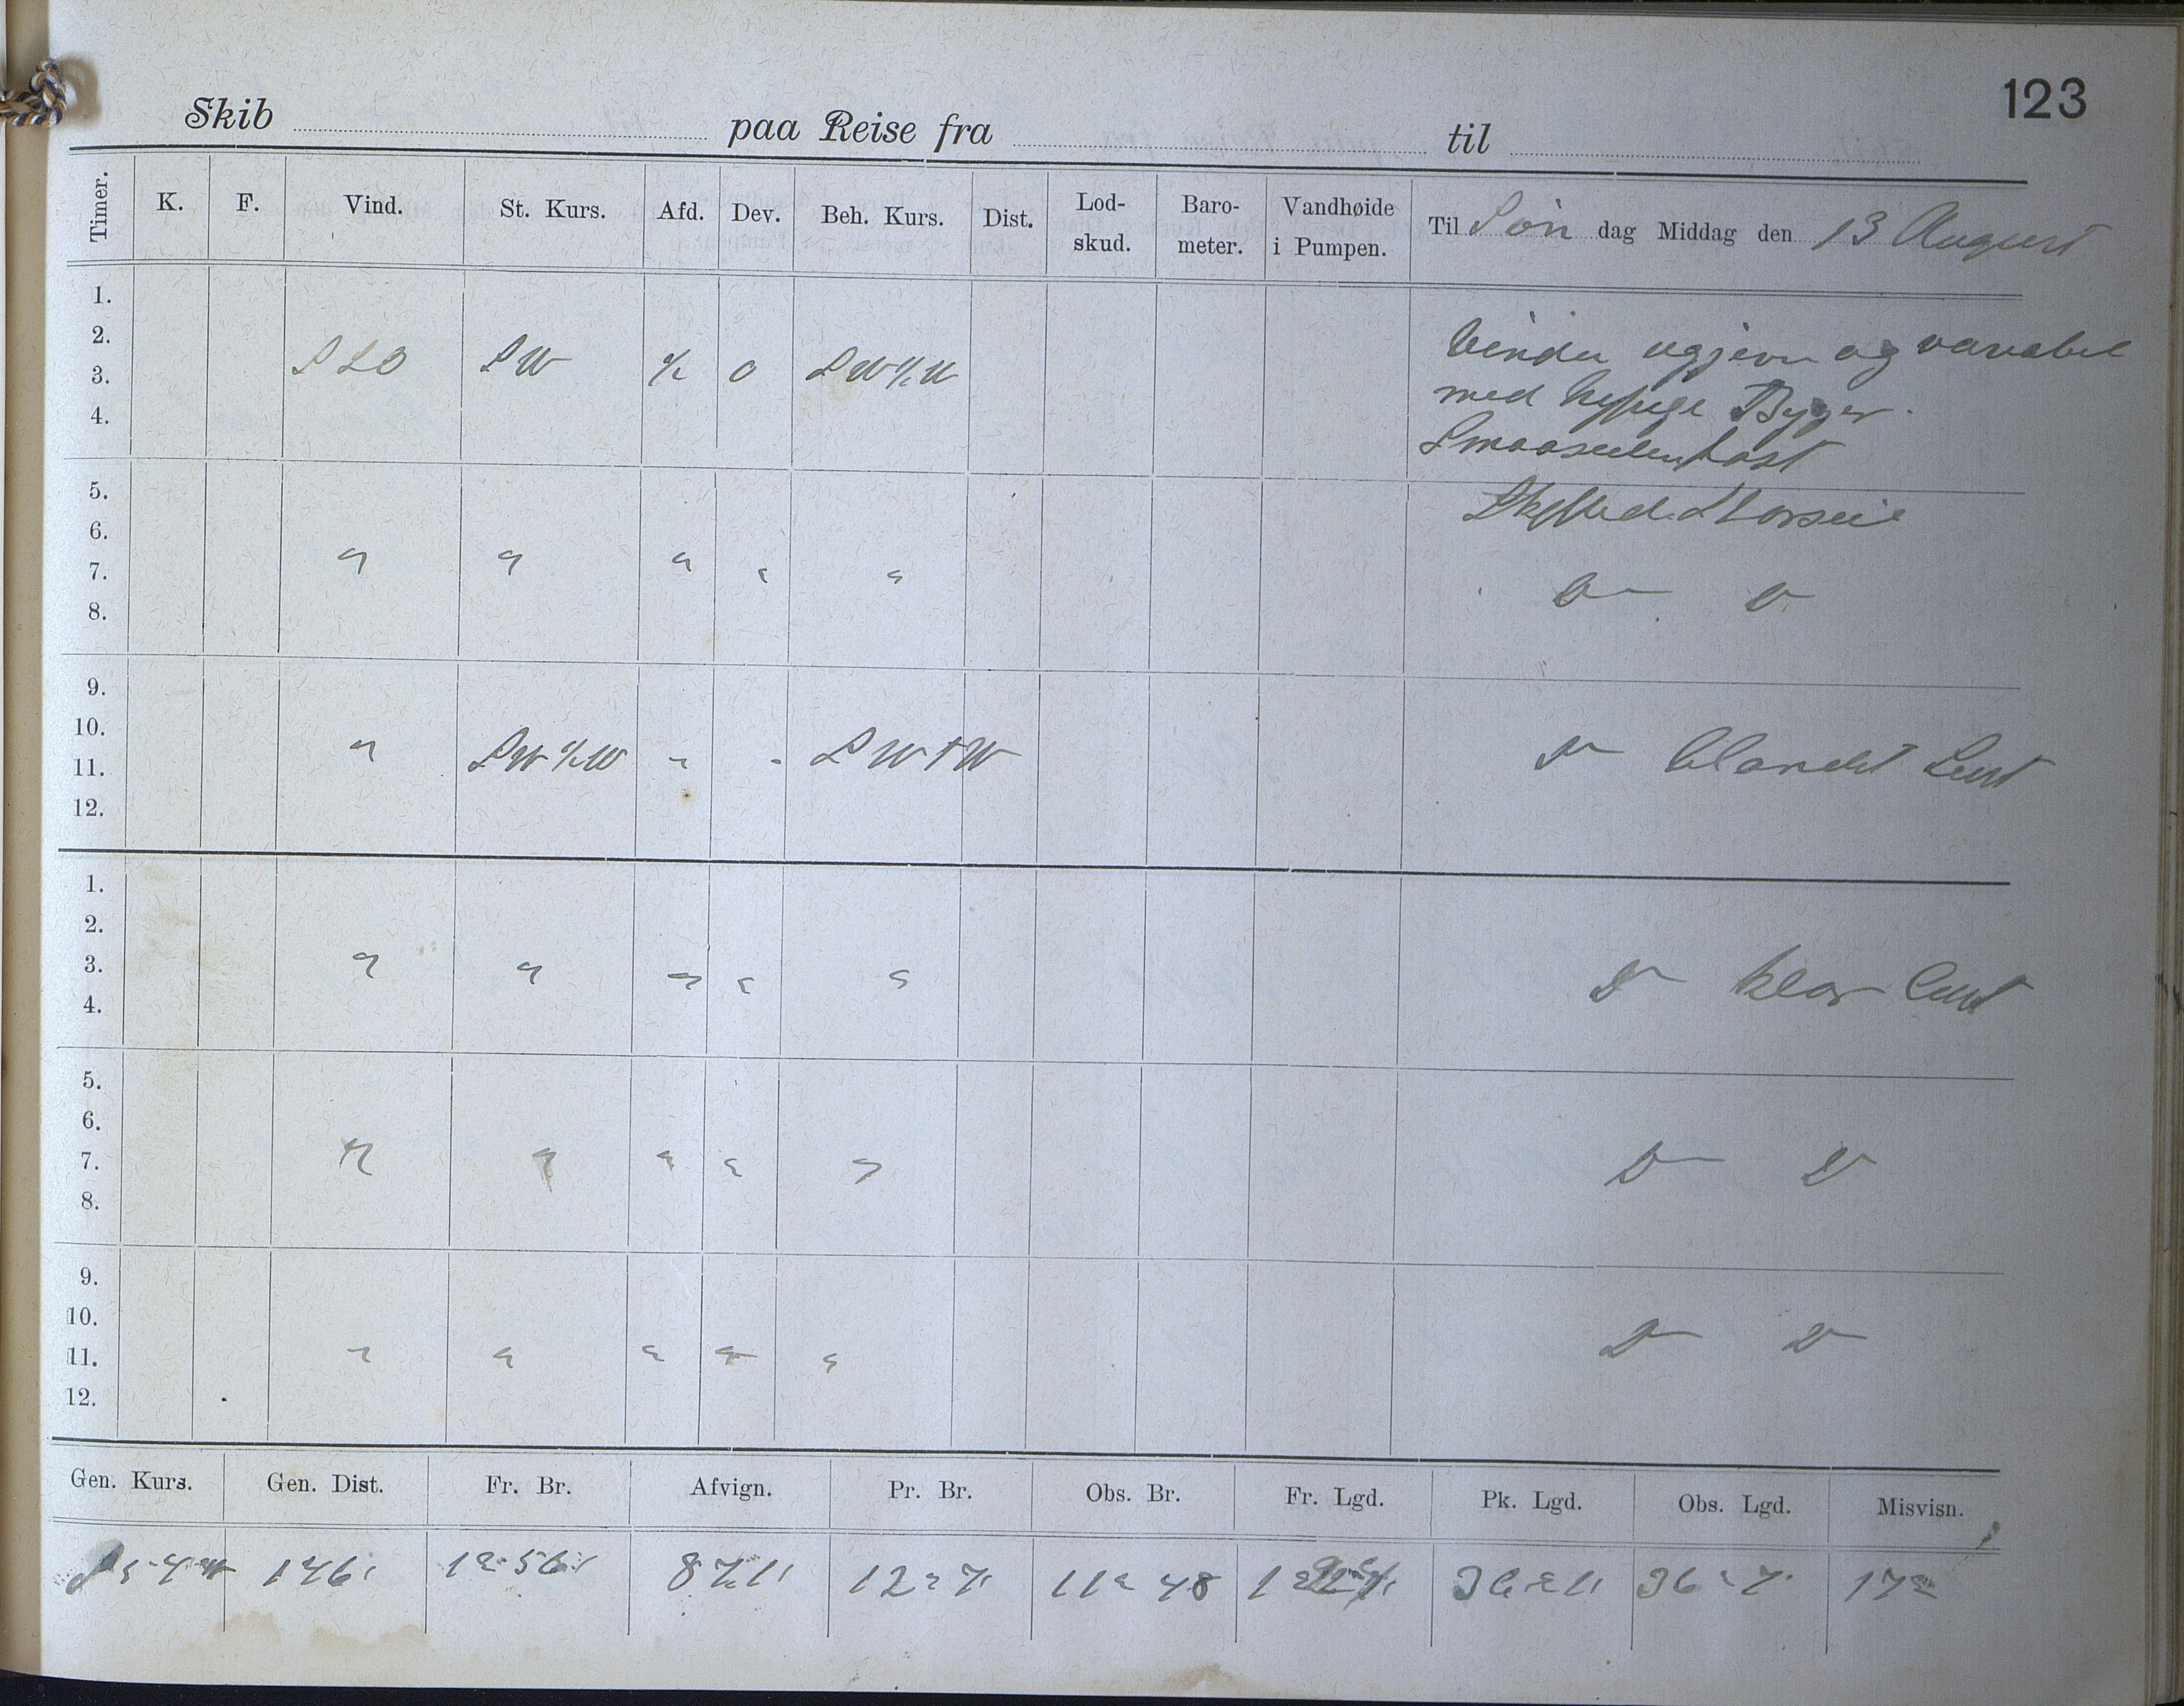 123
Skib paa Reise fra til
Timer. K. F. Vind. St. Kurs. Afd. Dev. Beh. Kurs. Dist. Lod-skud. Baro-meter. Vandhøide i Pumpen. Til Søn dag Middag den 13 August
1.
2. Vinden ugjevn og variabel
3. SSO SW ½ 0 SW½W med heftige Byger.
4. Smaaseilen fast
5. Skiftede Storseil
6.
7. " " " " " D D
8.
9.
10.
11. " SW½W " " SWtW D blandet Luft
12.
1.
2.
3. " " " " " D klar Luft
4.
5.
6.
7. " " " " " D D
8.
9.
10.
11. " " " " " D D
12.
Gen. Kurs. Gen. Dist. Fr. Br. Afvign. Pr. Br. Obs. Br. Fr. Lgd. Pk. Lgd. Obs. Lgd. Misvisn.
146' 12° 7' 11° 48 36° 7' 17°